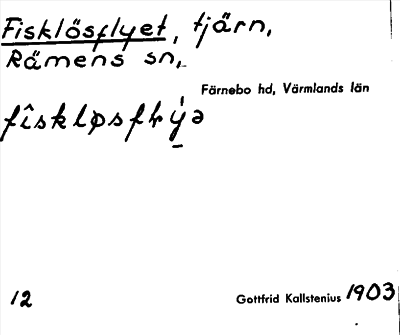 Fisklösflyet, tjärn,
Rämens sn,
Färnebo hd, Värmlands län
12
Gottfrid Kallstenius 1903